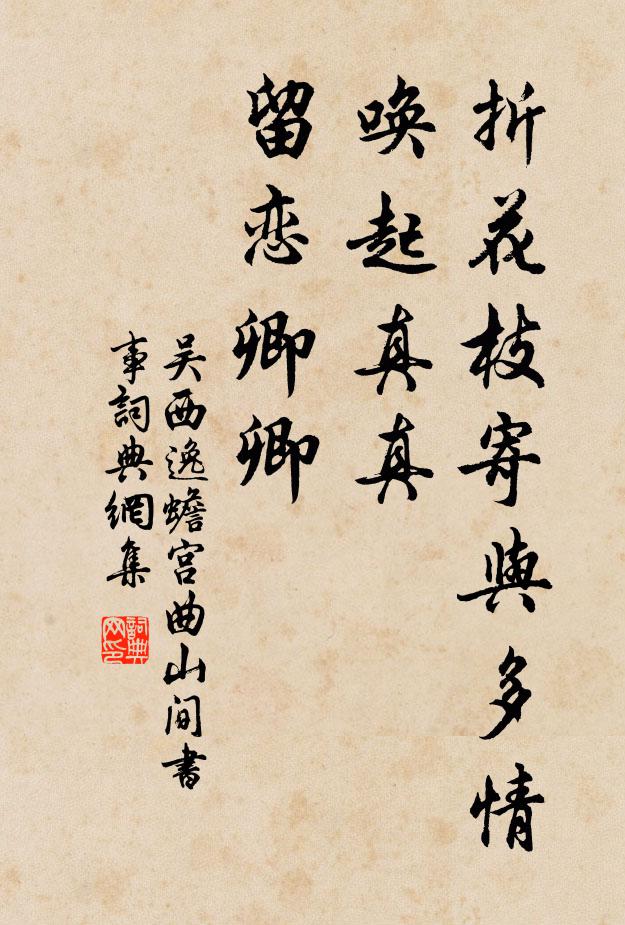 折花枝寄與多情
唤起真真
留恋卿卿
吴西逸蟾宫曲山间書
事詞典網集
詞典网印